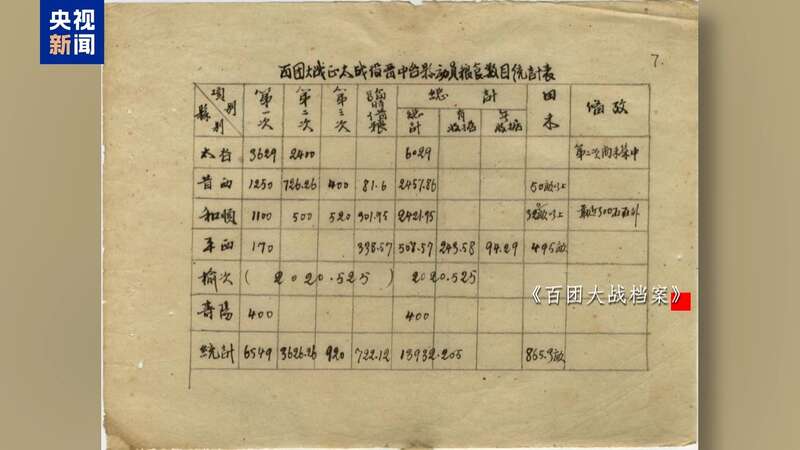 央视
新闻
7.
百团大战正太战役晋中各县动员粮食数目统计表
項別 縣別 第一次 第二次 第三次 臨時借粮 總計 田禾 備攷
總計 有收據 無收據
太谷 3629 2400 6029 第二次尚未集中
昔西 1250 726.26 400 81.6 2457.86 50畝以上
和順 1100 500 520 301.95 2421.95 320畝以上
平西 170 338.57 508.57 243.58 94.29 495畝
榆次 ( 2020.525 ) 2020.525
壽陽 400 400
統計 6549 3626.26 920 722.12 13932.205 865.3畝
《百团大战档案》